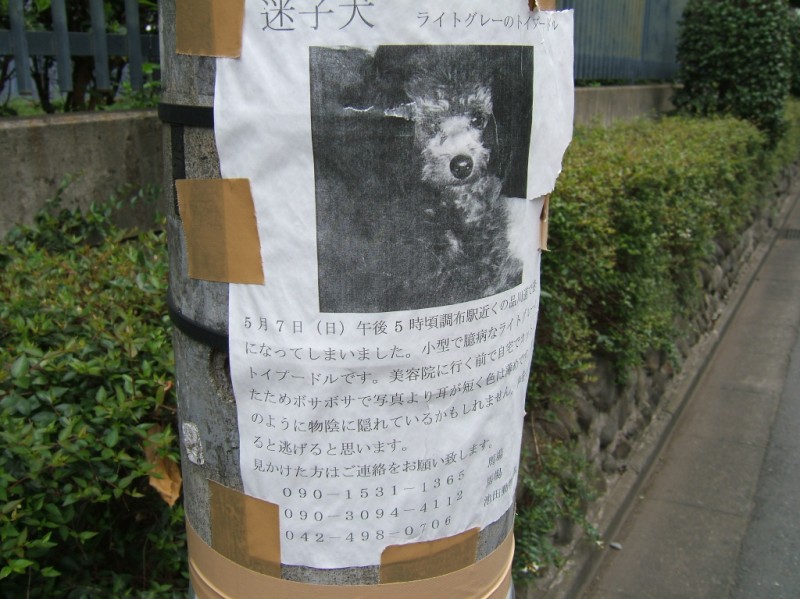 迷子犬 ライトグレーのトイプードル
5月7日（日）午後5時頃調布駅近くの品川道で
になってしまいました。小型で臆病なライトグレー
トイプードルです。美容院に行く前で自宅で
たためボサボサで写真より耳が短く色は薄めで
のように物陰に隠れているかもしれません。
ると逃げると思います。
見かけた方はご連絡をお願い致します。
090－1531－1365 馬場
090－3094－4112 馬場
042－498－0706